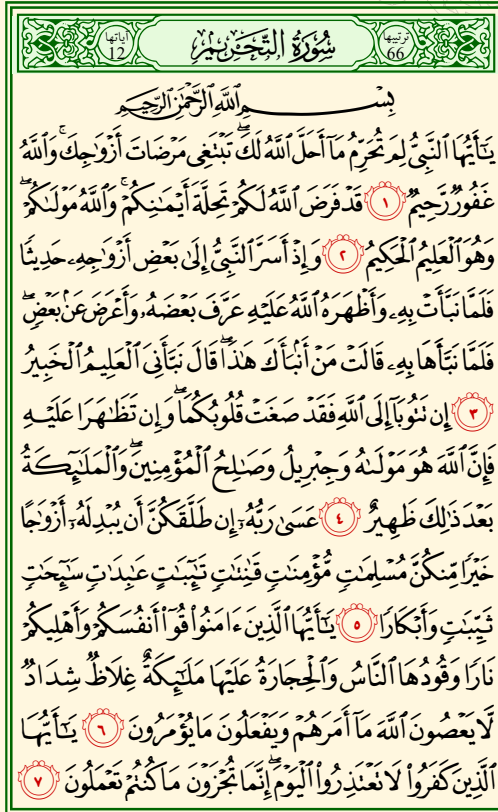 ترتيبها 66 سُورَةُ التَّحۡرِيمِ آياتها 12
بِسۡمِ ٱللَّهِ ٱلرَّحۡمَٰنِ ٱلرَّحِيمِ
يَٰٓأَيُّهَا ٱلنَّبِيُّ لِمَ تُحَرِّمُ مَآ أَحَلَّ ٱللَّهُ لَكَۖ تَبۡتَغِي مَرۡضَاتَ أَزۡوَٰجِكَۚ وَٱللَّهُ
غَفُورٞ رَّحِيمٞ ١ قَدۡ فَرَضَ ٱللَّهُ لَكُمۡ تَحِلَّةَ أَيۡمَٰنِكُمۡۚ وَٱللَّهُ مَوۡلَىٰكُمۡۖ
وَهُوَ ٱلۡعَلِيمُ ٱلۡحَكِيمُ ٢ وَإِذۡ أَسَرَّ ٱلنَّبِيُّ إِلَىٰ بَعۡضِ أَزۡوَٰجِهِۦ حَدِيثٗا
فَلَمَّا نَبَّأَتۡ بِهِۦ وَأَظۡهَرَهُ ٱللَّهُ عَلَيۡهِ عَرَّفَ بَعۡضَهُۥ وَأَعۡرَضَ عَنۢ بَعۡضٖۖ
فَلَمَّا نَبَّأَهَا بِهِۦ قَالَتۡ مَنۡ أَنۢبَأَكَ هَٰذَاۖ قَالَ نَبَّأَنِيَ ٱلۡعَلِيمُ ٱلۡخَبِيرُ
٣ إِن تَتُوبَآ إِلَى ٱللَّهِ فَقَدۡ صَغَتۡ قُلُوبُكُمَاۖ وَإِن تَظَٰهَرَا عَلَيۡهِ
فَإِنَّ ٱللَّهَ هُوَ مَوۡلَىٰهُ وَجِبۡرِيلُ وَصَٰلِحُ ٱلۡمُؤۡمِنِينَۖ وَٱلۡمَلَٰٓئِكَةُ
بَعۡدَ ذَٰلِكَ ظَهِيرٌ ٤ عَسَىٰ رَبُّهُۥٓ إِن طَلَّقَكُنَّ أَن يُبۡدِلَهُۥٓ أَزۡوَٰجًا
خَيۡرٗا مِّنكُنَّ مُسۡلِمَٰتٖ مُّؤۡمِنَٰتٖ قَٰنِتَٰتٖ تَٰٓئِبَٰتٍ عَٰبِدَٰتٖ سَٰٓئِحَٰتٖ
ثَيِّبَٰتٖ وَأَبۡكَارٗا ٥ يَٰٓأَيُّهَا ٱلَّذِينَ ءَامَنُواْ قُوٓاْ أَنفُسَكُمۡ وَأَهۡلِيكُمۡ
نَارٗا وَقُودُهَا ٱلنَّاسُ وَٱلۡحِجَارَةُ عَلَيۡهَا مَلَٰٓئِكَةٌ غِلَاظٞ شِدَادٞ
لَّا يَعۡصُونَ ٱللَّهَ مَآ أَمَرَهُمۡ وَيَفۡعَلُونَ مَا يُؤۡمَرُونَ ٦ يَٰٓأَيُّهَا
ٱلَّذِينَ كَفَرُواْ لَا تَعۡتَذِرُواْ ٱلۡيَوۡمَۖ إِنَّمَا تُجۡزَوۡنَ مَا كُنتُمۡ تَعۡمَلُونَ ٧